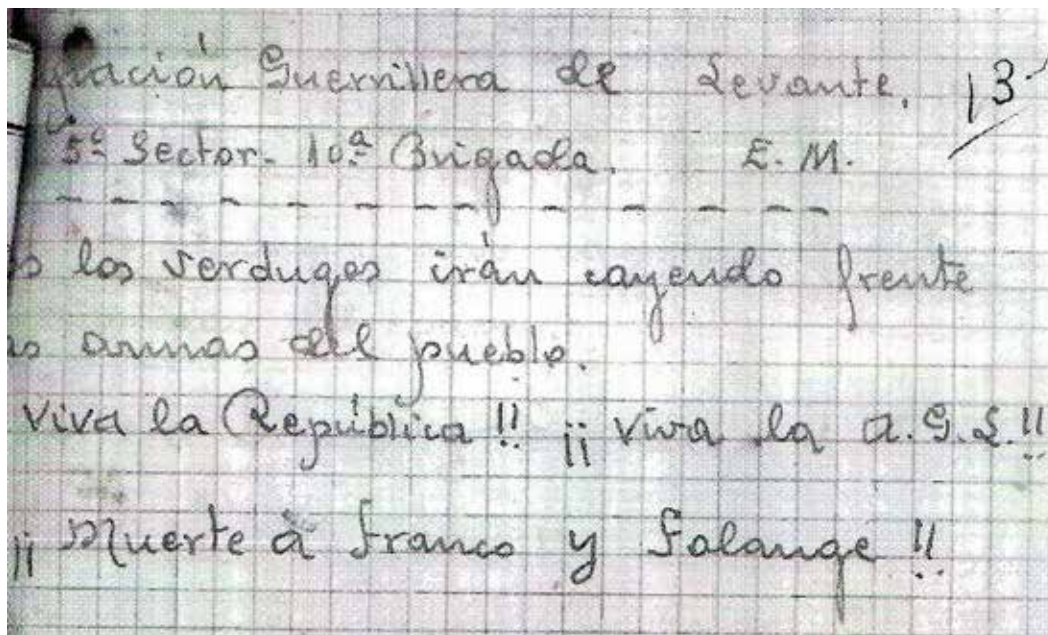 ación Guerrillera de Levante. 13
5º Sector- 10.ª Brigada. E. M.
los verdugos irán cayendo frente
armas del pueblo.
Viva la República!! ¡¡ Viva la A.G.L.!!
¡¡ Muerte à Franco y Falange!!